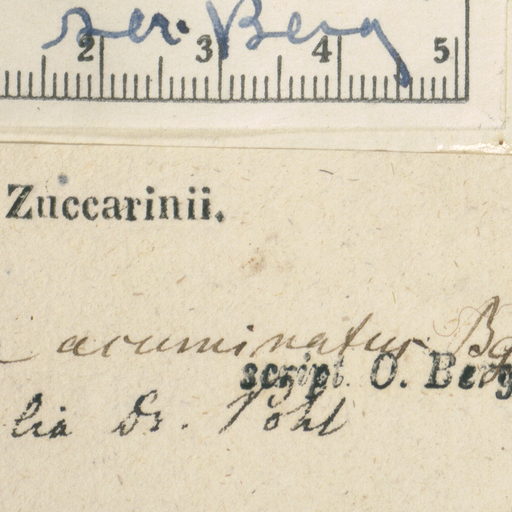 ser. Berg
2 3 4 5
Zuccarinii.
acuminatus Bg
script. O. Berg
lia Dr. Pohl